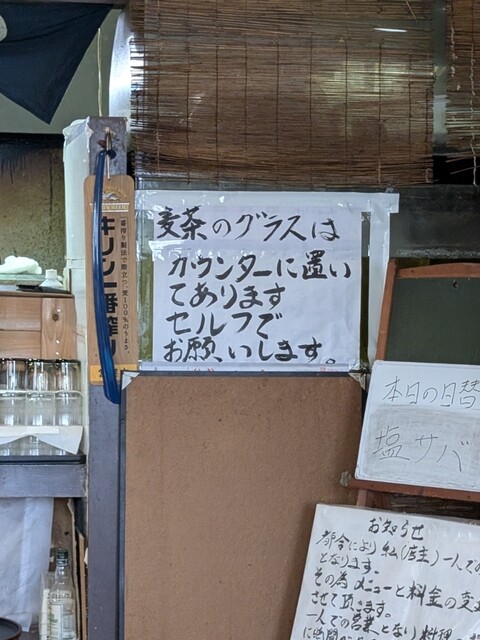 麦茶のグラスは
カウンターに置い
てあります
セルフで
お願いします。
キリン一番搾り
本日の日替
塩サバ
お知らせ
都合により私(店主)一人での
となります。
その為メニューと料金の変
させて頂きます。
一人での営業となり料理